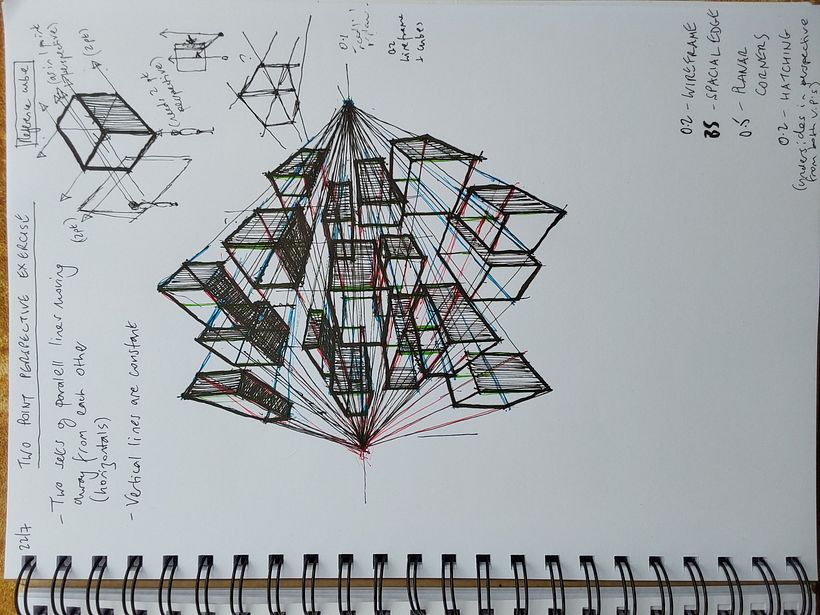 22/7
TWO POINT PERSPECTIVE EXERCISE
- Two sets of parallel lines moving
away from each other
(horizontals)
- Vertical lines are constant
Reference cube
(as in 1 point
perspective)
(2pt)
(2pt)
(needs 2 pt
perspective)
?
0.1
0.2
wireframe
+ cubes
0.2 - WIREFRAME
- SPACIAL EDGE
0.5 - PLANAR
CORNERS
0.2 - HATCHING
(undersides in perspective
from both v.p.s)